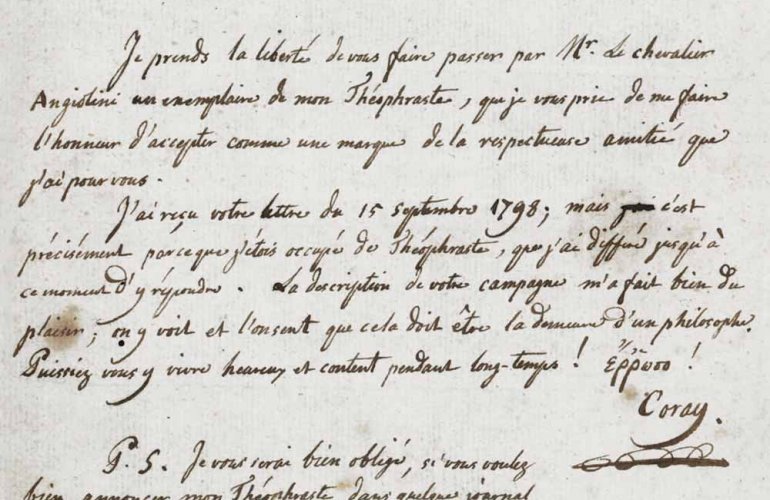 Je prends la liberté de vous faire passer par Mr. Le chevalier
Angiolini un exemplaire de mon Théophraste, que je vous prie de me faire
l'honneur d'accepter comme une marque de la respectueuse amitié que
j'ai pour vous.
J'ai reçu votre lettre du 15 septembre 1798; mais c'est
précisément parceque j'étois occupé de Théophraste, que j'ai différé jusqu'à
ce moment d'y répondre. La description de votre campagne m'a fait bien du
plaisir; on y voit et l'on sent que cela doit être la demeure d'un philosophe.
Puissiez vous y vivre heureux et content pendant long-temps! ἔῤῥωσο!
Coray.
P. S. Je vous serai bien obligé, si vous voulez
bien annoncer mon Théophraste dans quelque journal